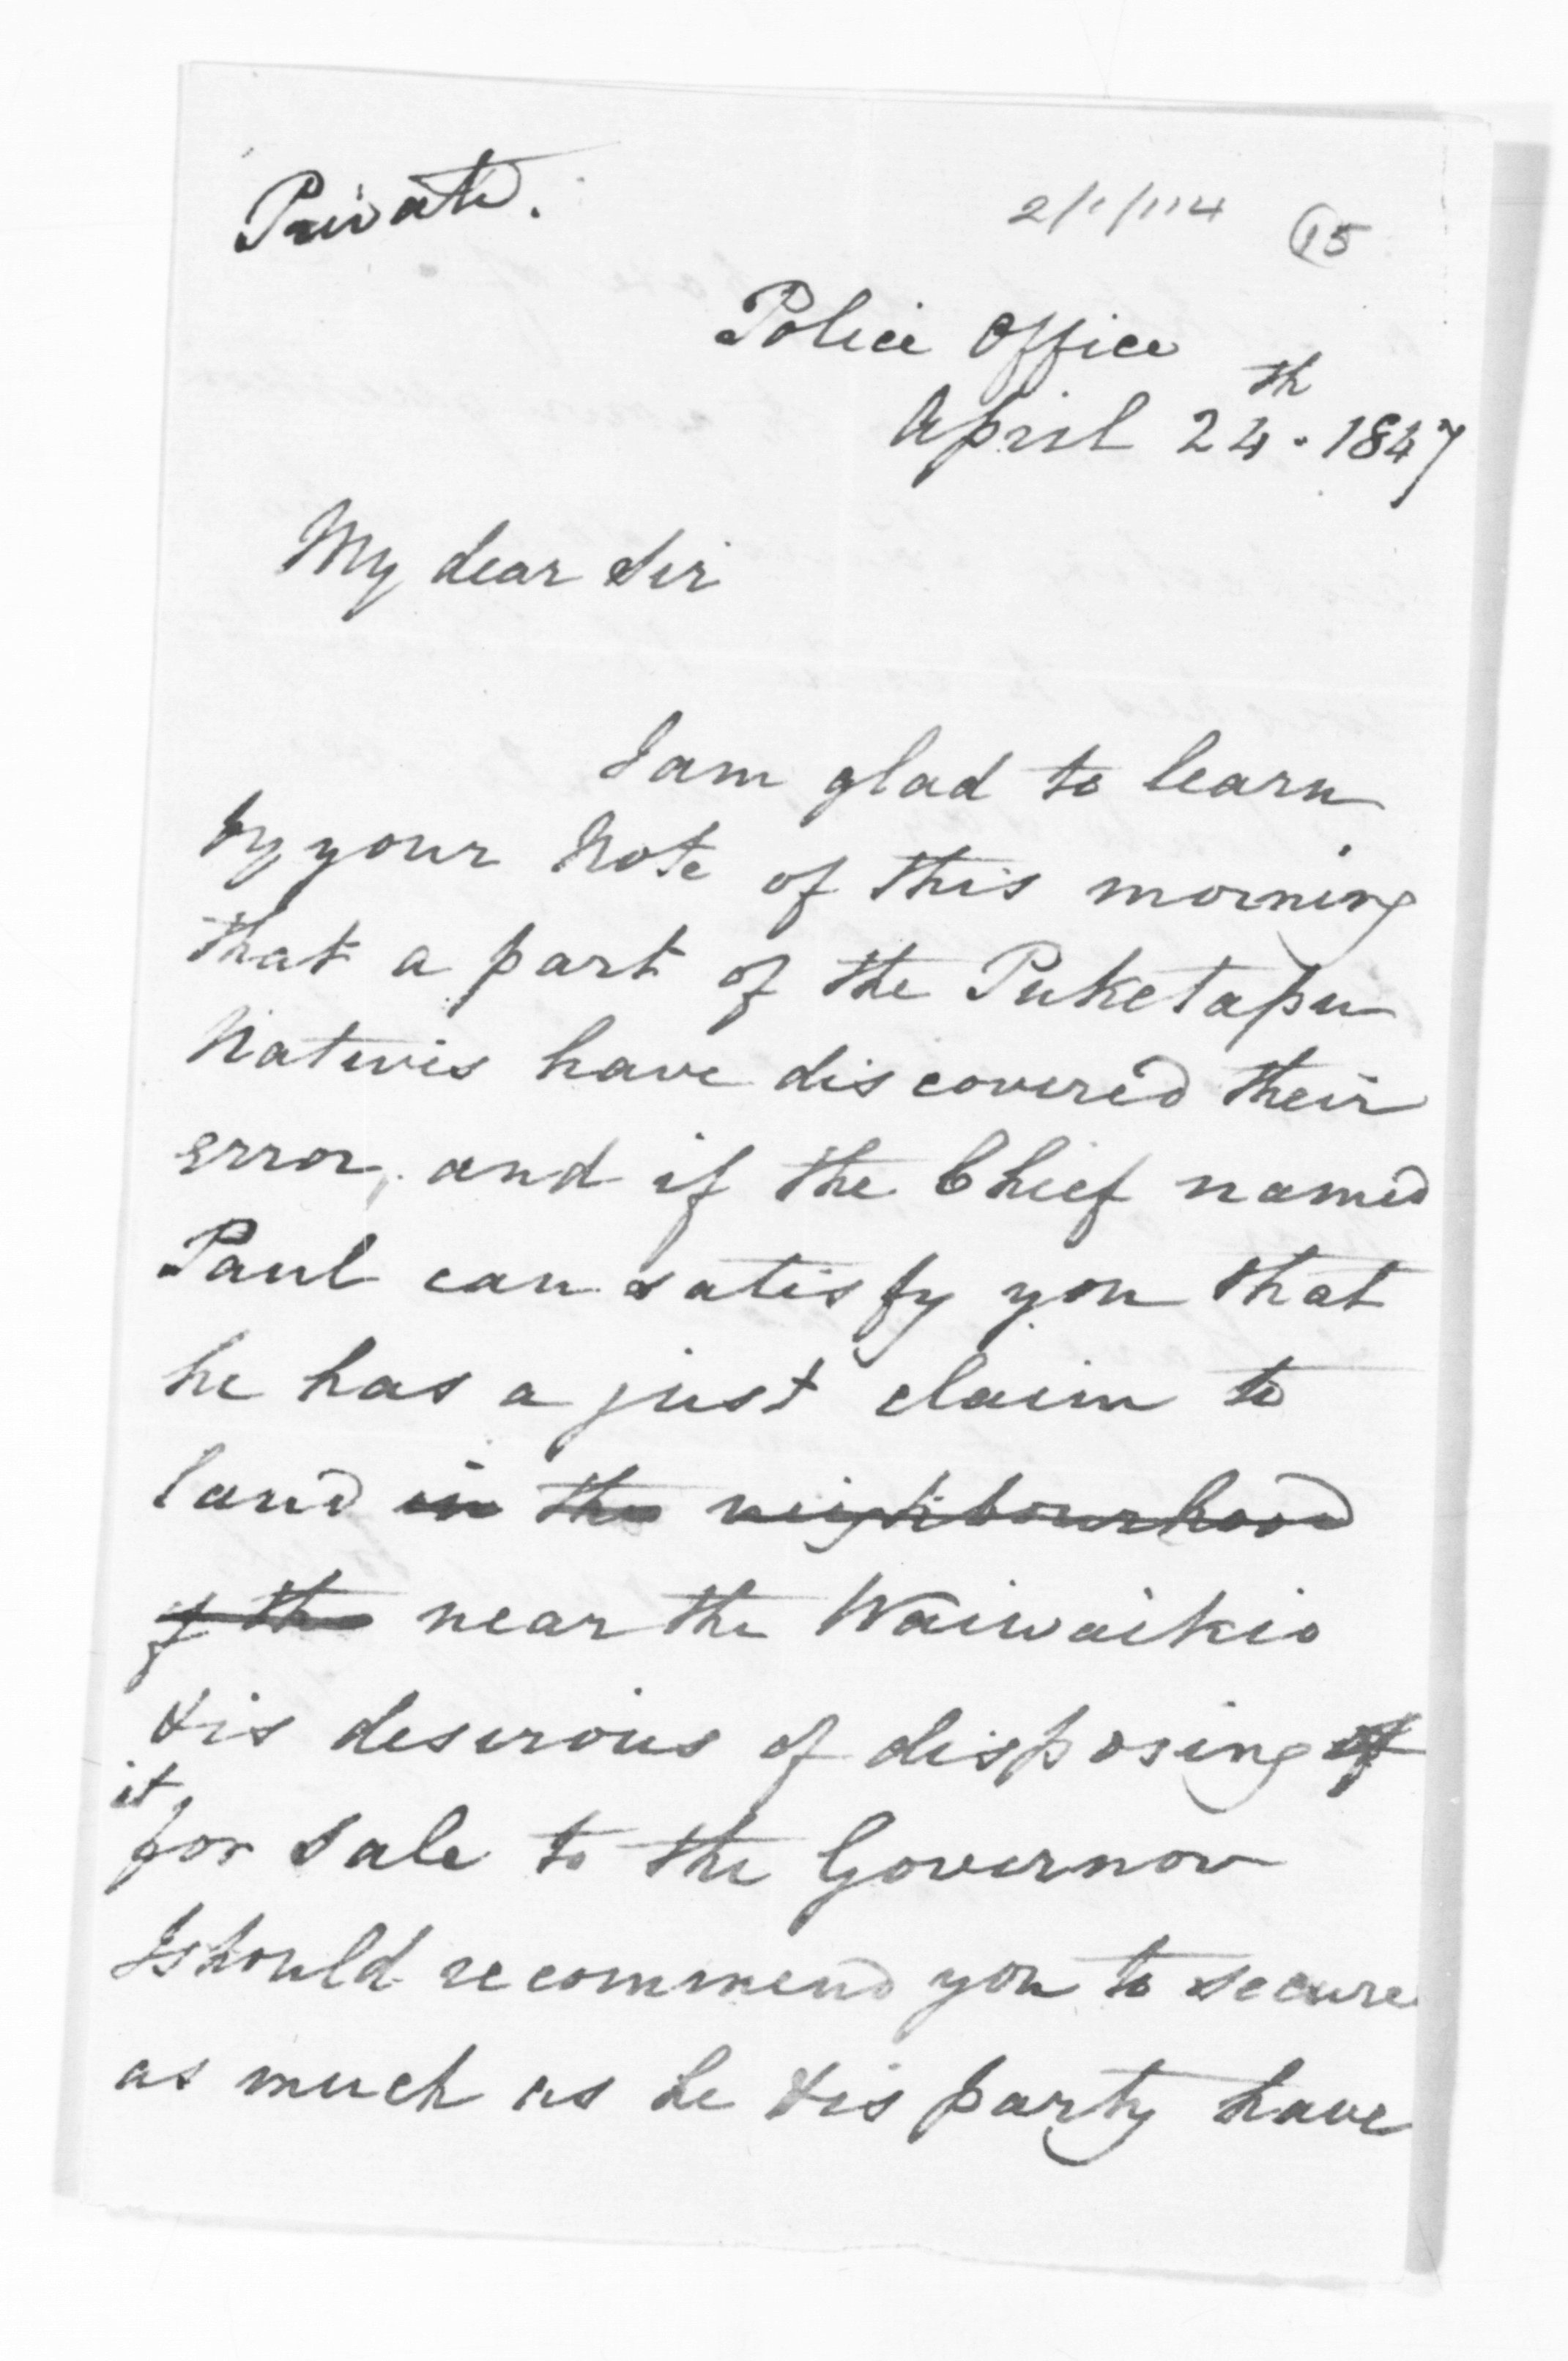 Private.
2/1/114 (15
Police Office
April 24th. 1847
My dear Sir
I am glad to learn
by your Note of this morning
that a part of the Puketapu
Natives have discovered their
error, and if the Chief named
Paul can satisfy you that
he has a just claim to
land in the neighbourhood
of the near the Waiwaikio
& is desirous of disposing of
it
for sale to the Governor
I should recommend you to secure
as much as he & his party have